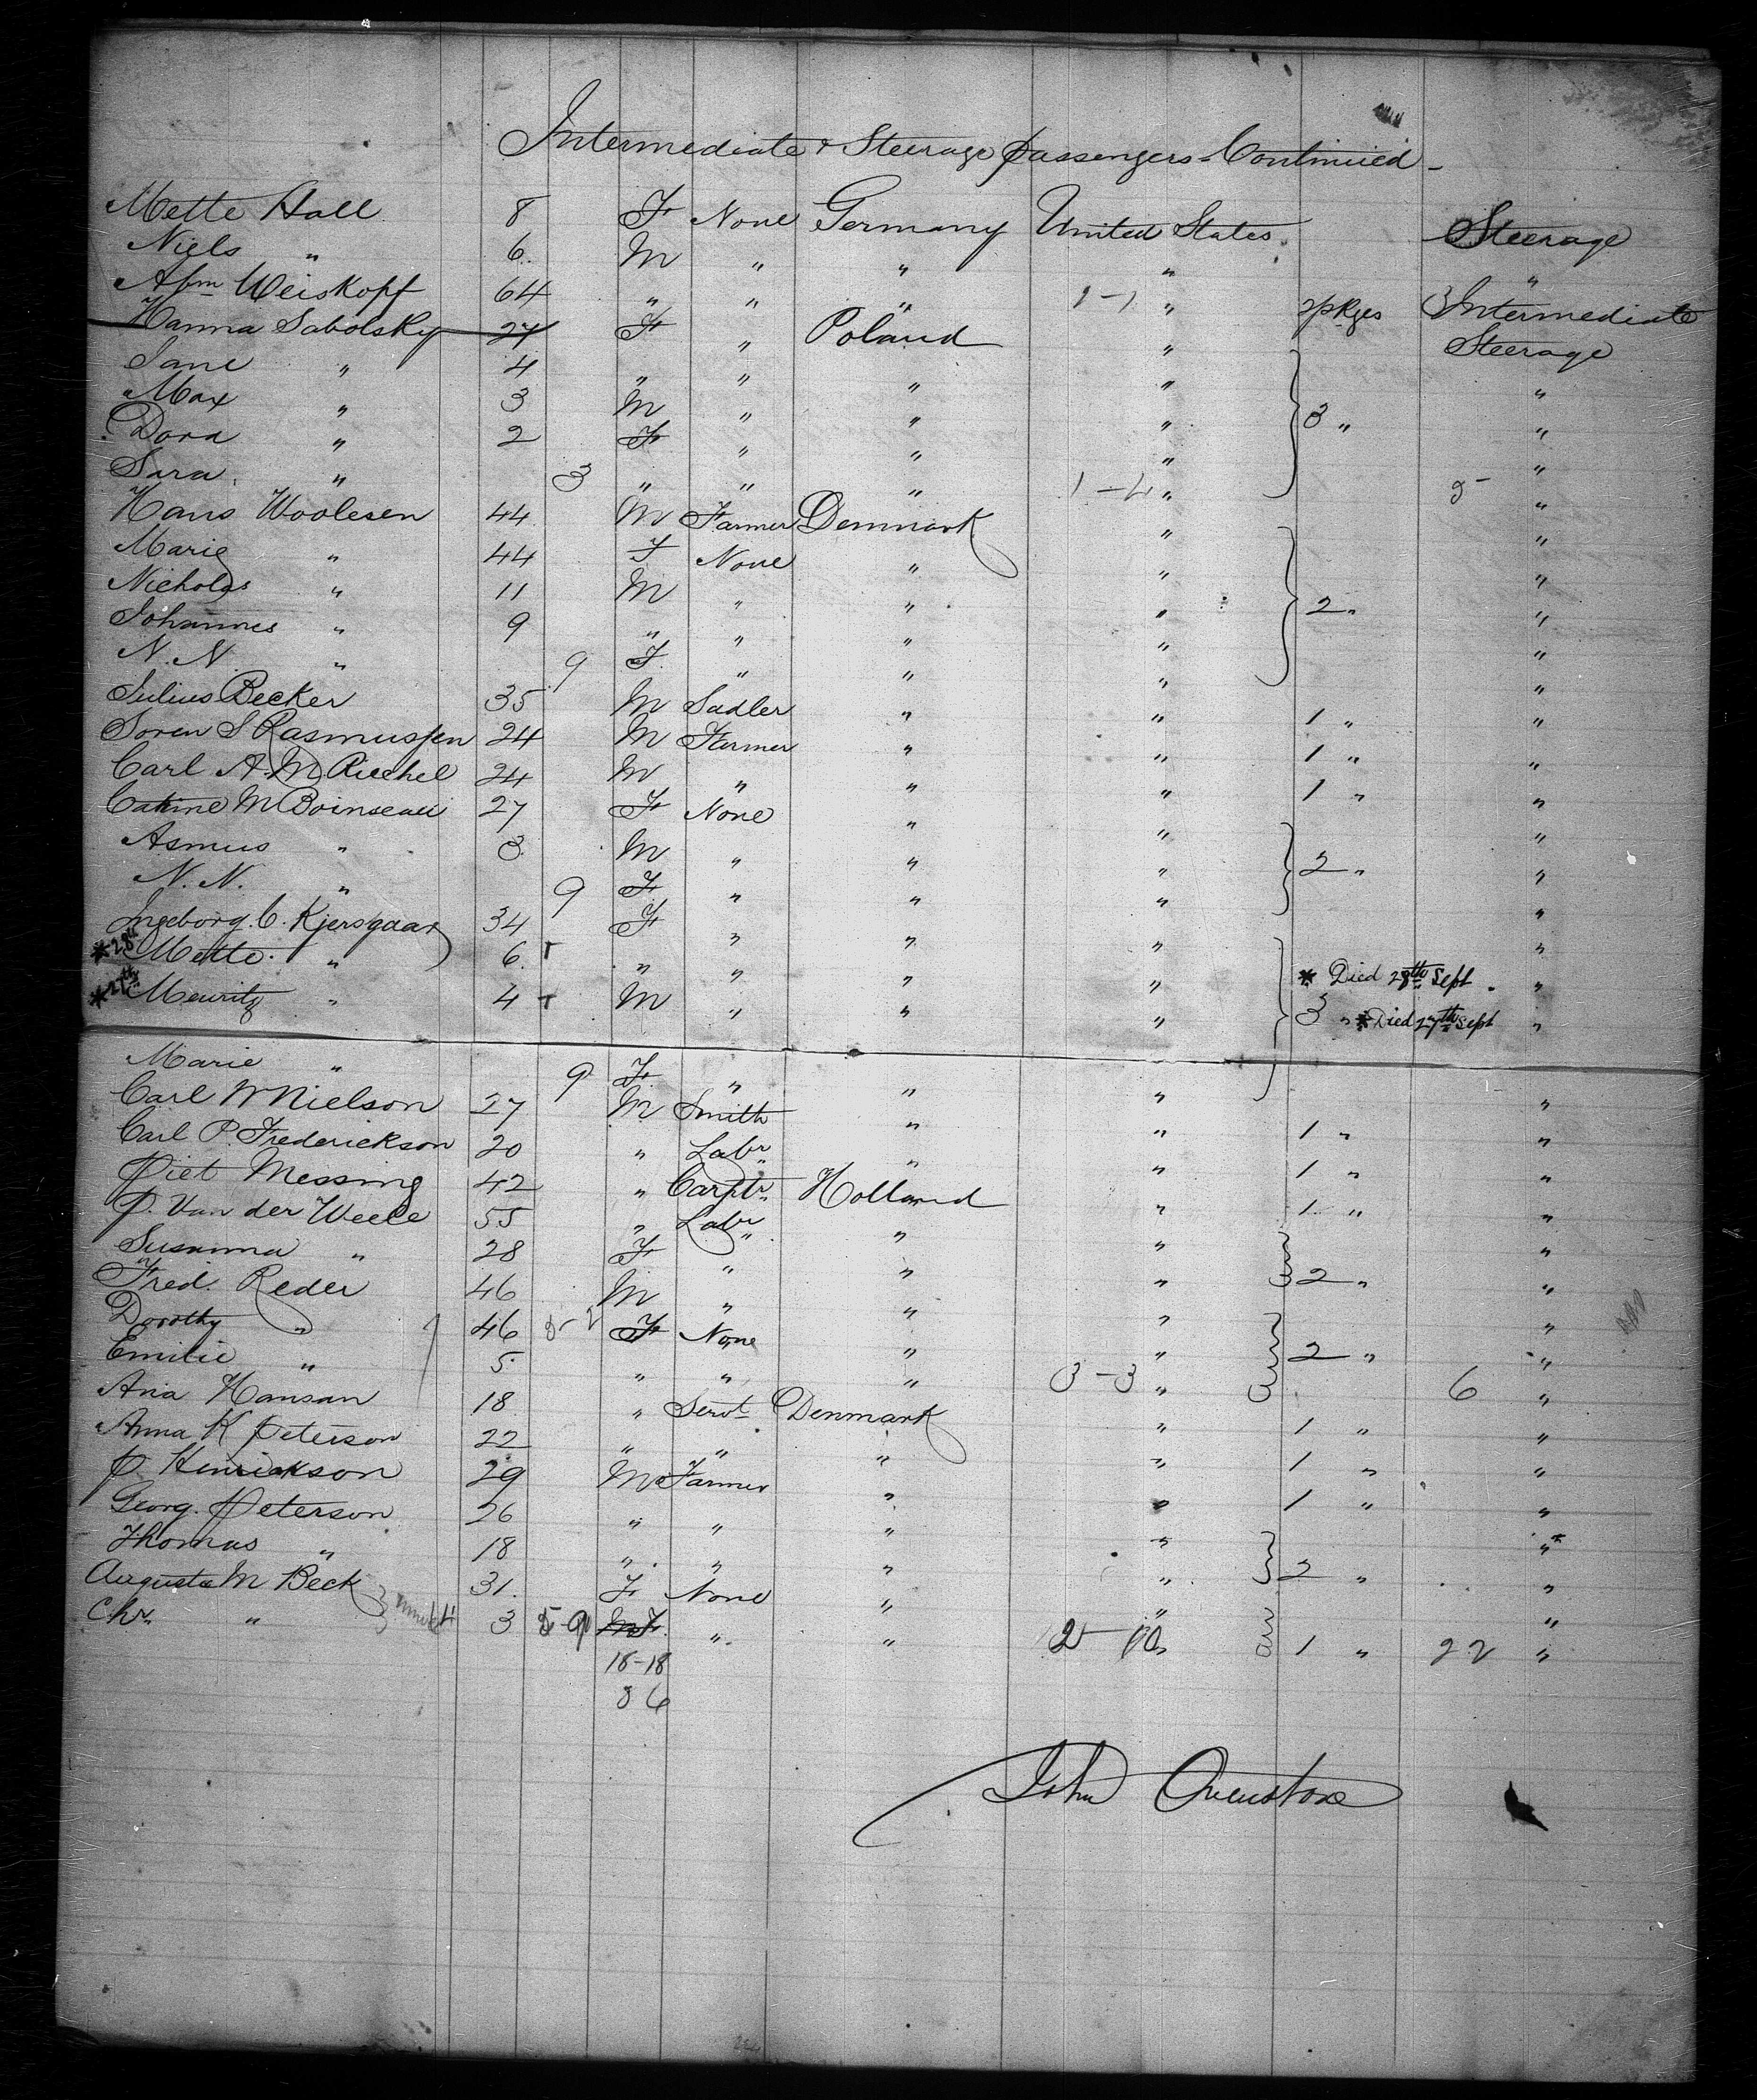 Intermediate & Steerage passengers Continued -
Mette Hall 8 F None Germany United States Steerage
Niels " 6 M " " " "
Abm Weiskopf 64 " " " 1-1 " 2 pkges Intermediate
Hanna Sabolsky 27 F " Poland " Steerage
Jane " 4 " " " " "
Max " 3 M " " " "
Dora " 2 F " " " 3 " "
Sara " 3 " " " 1-4 " "
Hans Woolesen 44 M Farmer Denmark " "
Marie " 44 F None " " "
Nicholas " 11 M " " " 2 " "
Johannes " 9 " " " " "
N. N. " 9 F " " " "
Julius Becker 35 M Sadler " " 1 " "
Soren S Rasmussen 24 M Farmer " " 1 " "
Carl A. M. Riechel 24 M " " " 1 " "
Catrine M Boinseau 27 F None " " "
Asmus " 3 M " " " 2 " "
N. N. " 9 F " " " "
Ingeborg. C. Kjersgaar 34 F " " " "
* 28th Mette " 6 " " " " * Died 28th Sept. "
* 27th Mouritz " 4 M " " " 3 " * Died 27th Sept "
Marie " 9 F " " " "
Carl W Nielson 27 M Smith " " 1 " "
Carl P. Frederickson 20 " Labr " " 1 " "
Piet Messing 42 " Carptr Holland " 1 " "
P. Van der Weele 55 " Labr " " "
Susanna " 28 F " " " 2 " "
Fred. Reder 46 M " " " "
Dorothy " 46 F None " " 2 " "
Emilie " 5 " " " 3-3 " 6 "
Ana Hansan 18 " Servt Denmark " 1 " "
Anna K Peterson 22 " " " " 1 " "
P. Henrickson 29 M Farmer " " 1 " "
Georg. Peterson 26 " " " " "
Thomas " 18 " " " " 2 " "
Augusta M Beck 31 F None " " "
Chr. " 3 M F " " " 1 " 22 "
18-18
36
John Ovenstone